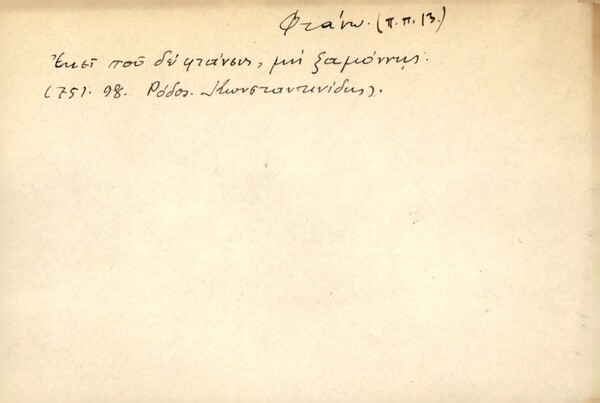 Φτάνω. (π.π. 13.)
Ἐκεῖ ποῦ δέ φτάνεις, μή ξαμώννῃς.
(751. 98. Ρόδος. Κωνσταντινίδης).